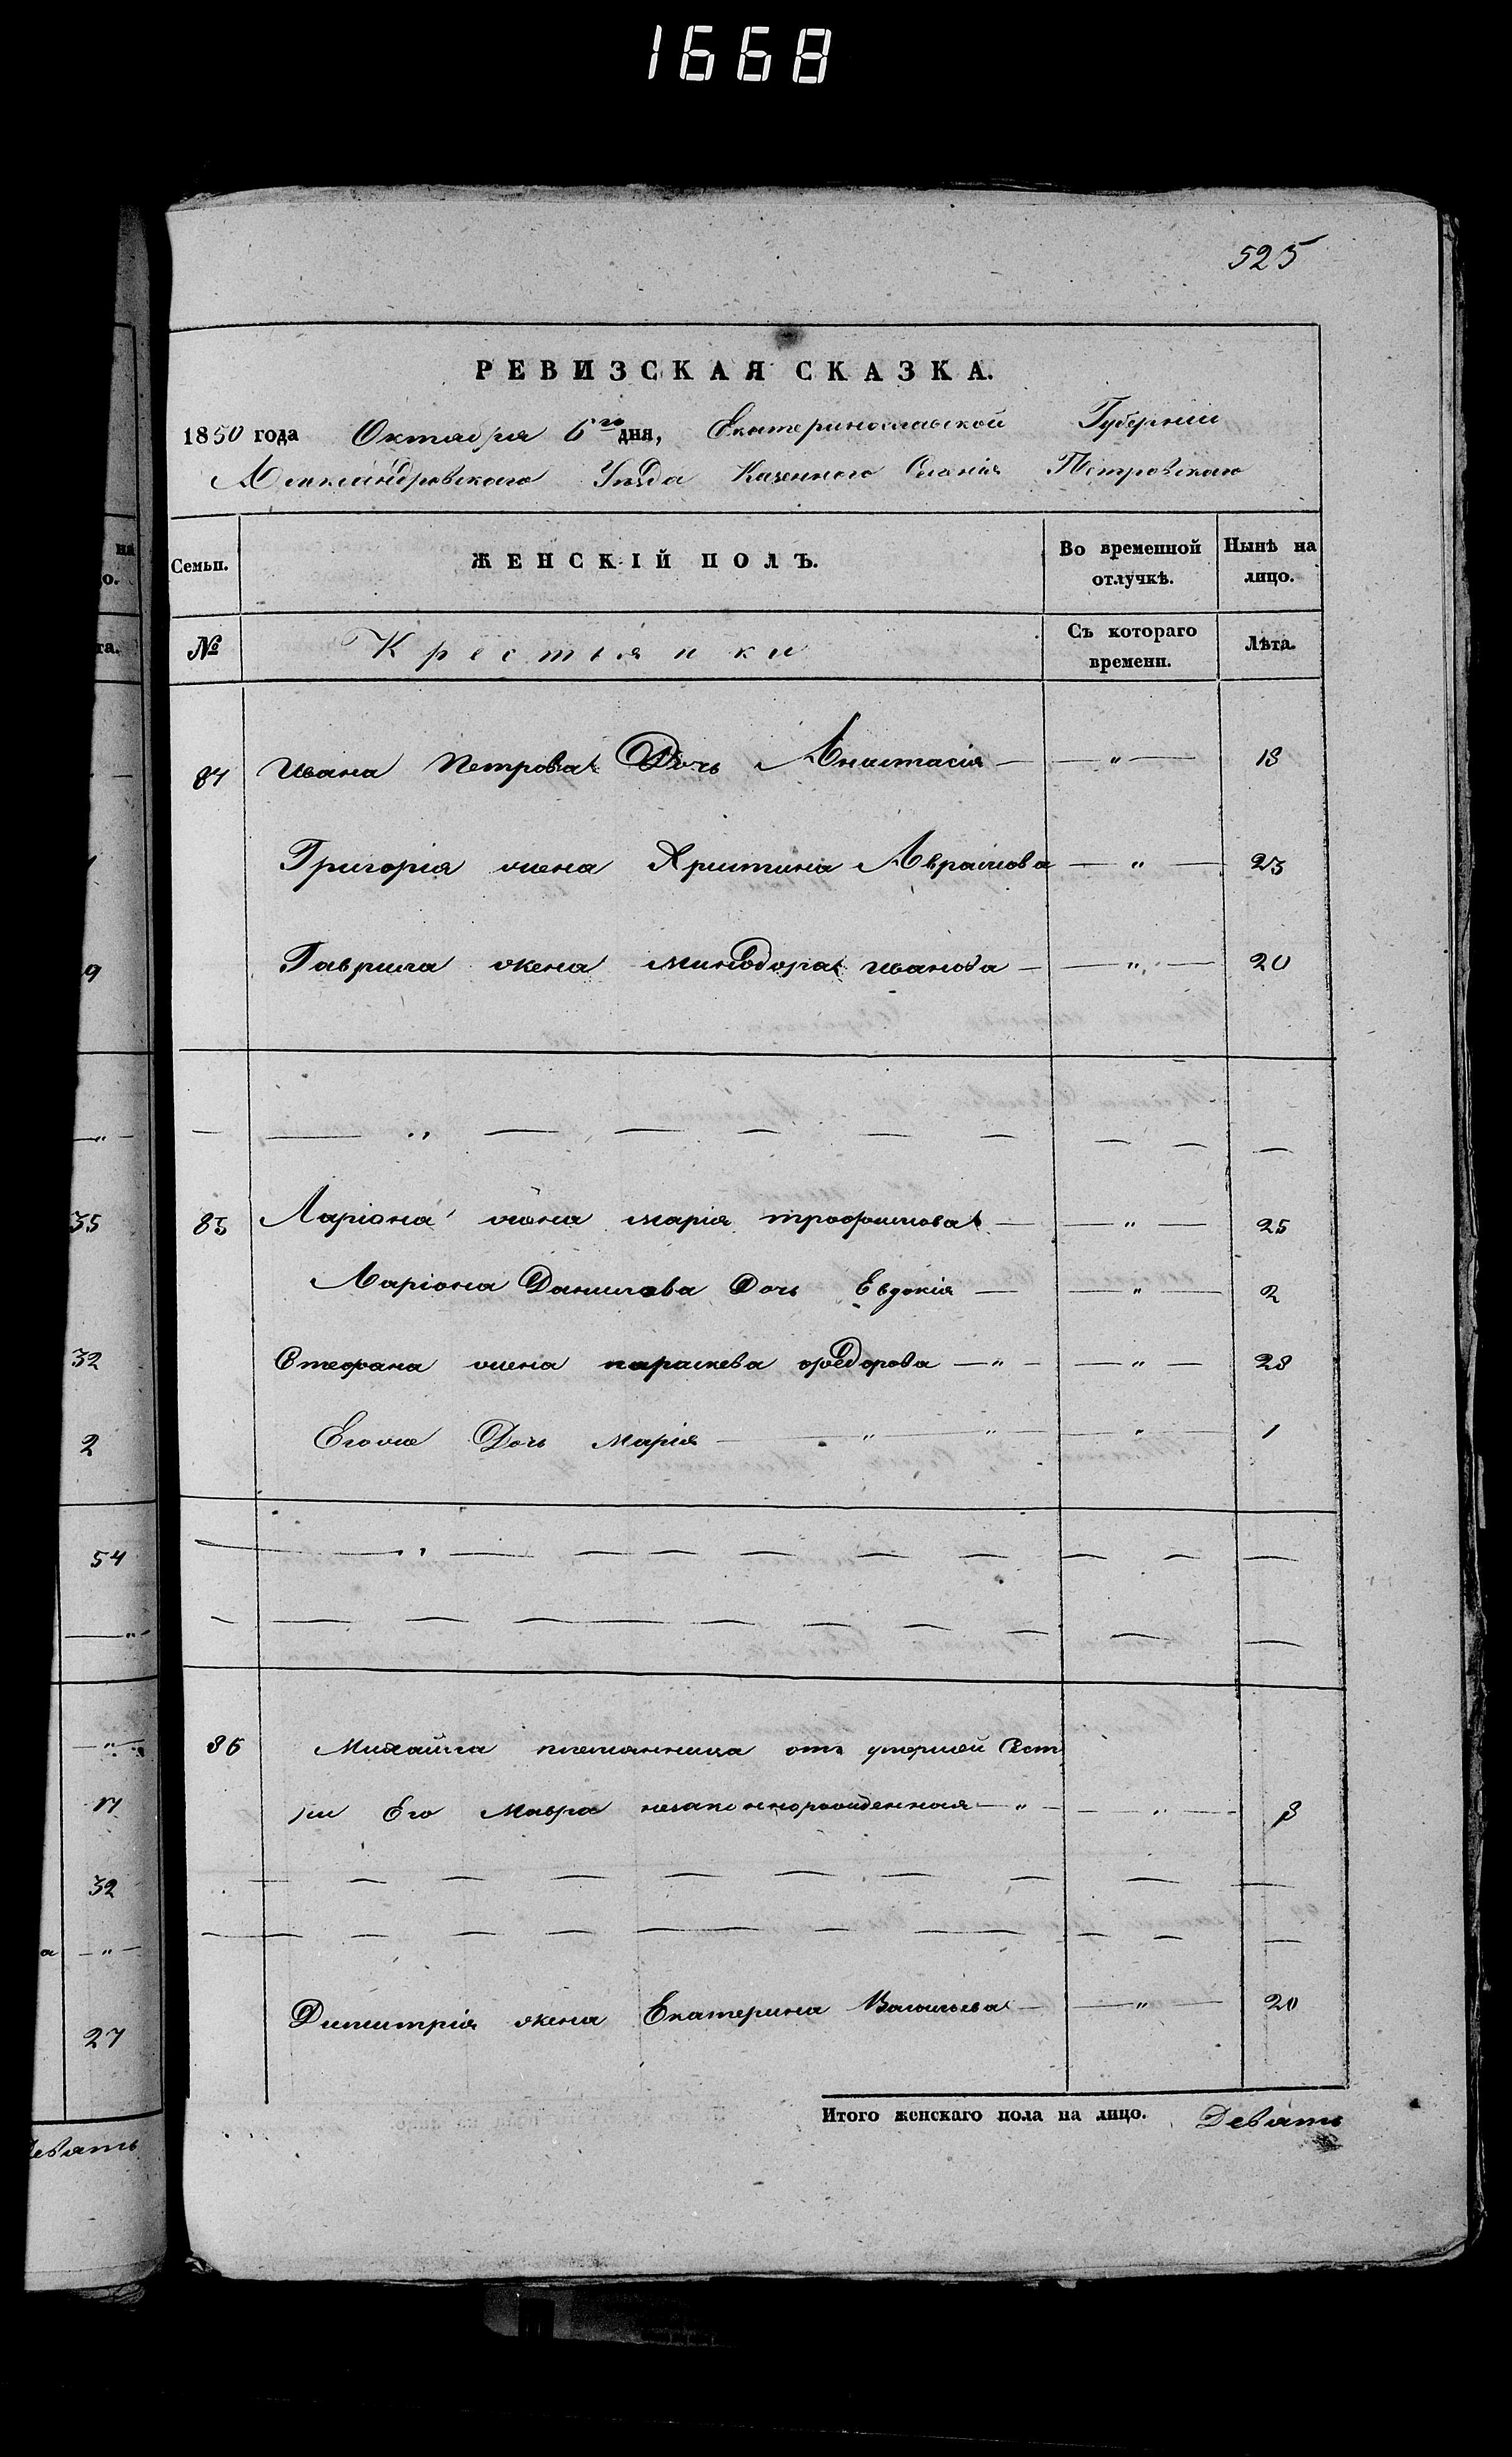 1668
525
РЕВИЗСКАЯ СКАЗКА.
1850 года Октября 6го дня, Екатеринославской Губерніи
Александровского Уезда Казенного Селенія Петровскаго
Семьи. ЖЕНСКІЙ ПОЛЪ. Во временной отлучкѣ. Нынѣ на лицо.
№ Крестьянки Съ котораго времени. Лѣта.
84 Ивана Петрова Дочь Анастасія — — " — 18
Григорія жена Христина Авраамова — " — 23
Гаврила жена Минодора Иванова — — " — 20
85 Ларіона жена марія трофимова — — " — 25
Ларіона Данилова Дочь Евдокія — — " — 2
Стефана жена параскева федорова — " — — " — 28
Егоже Дочь Марія — " " — — " — 1
86 Михайла племянница отъ умершей Сест
ри Его Мавра незаконнорожденная — " — — " — 8
Димитрія жена Екатерина Васильева — — " — 20
Итого женскаго пола на лицо. Девять
на
о.
та.
9
35
32
2
54
17
32
а — " —
27
Девять